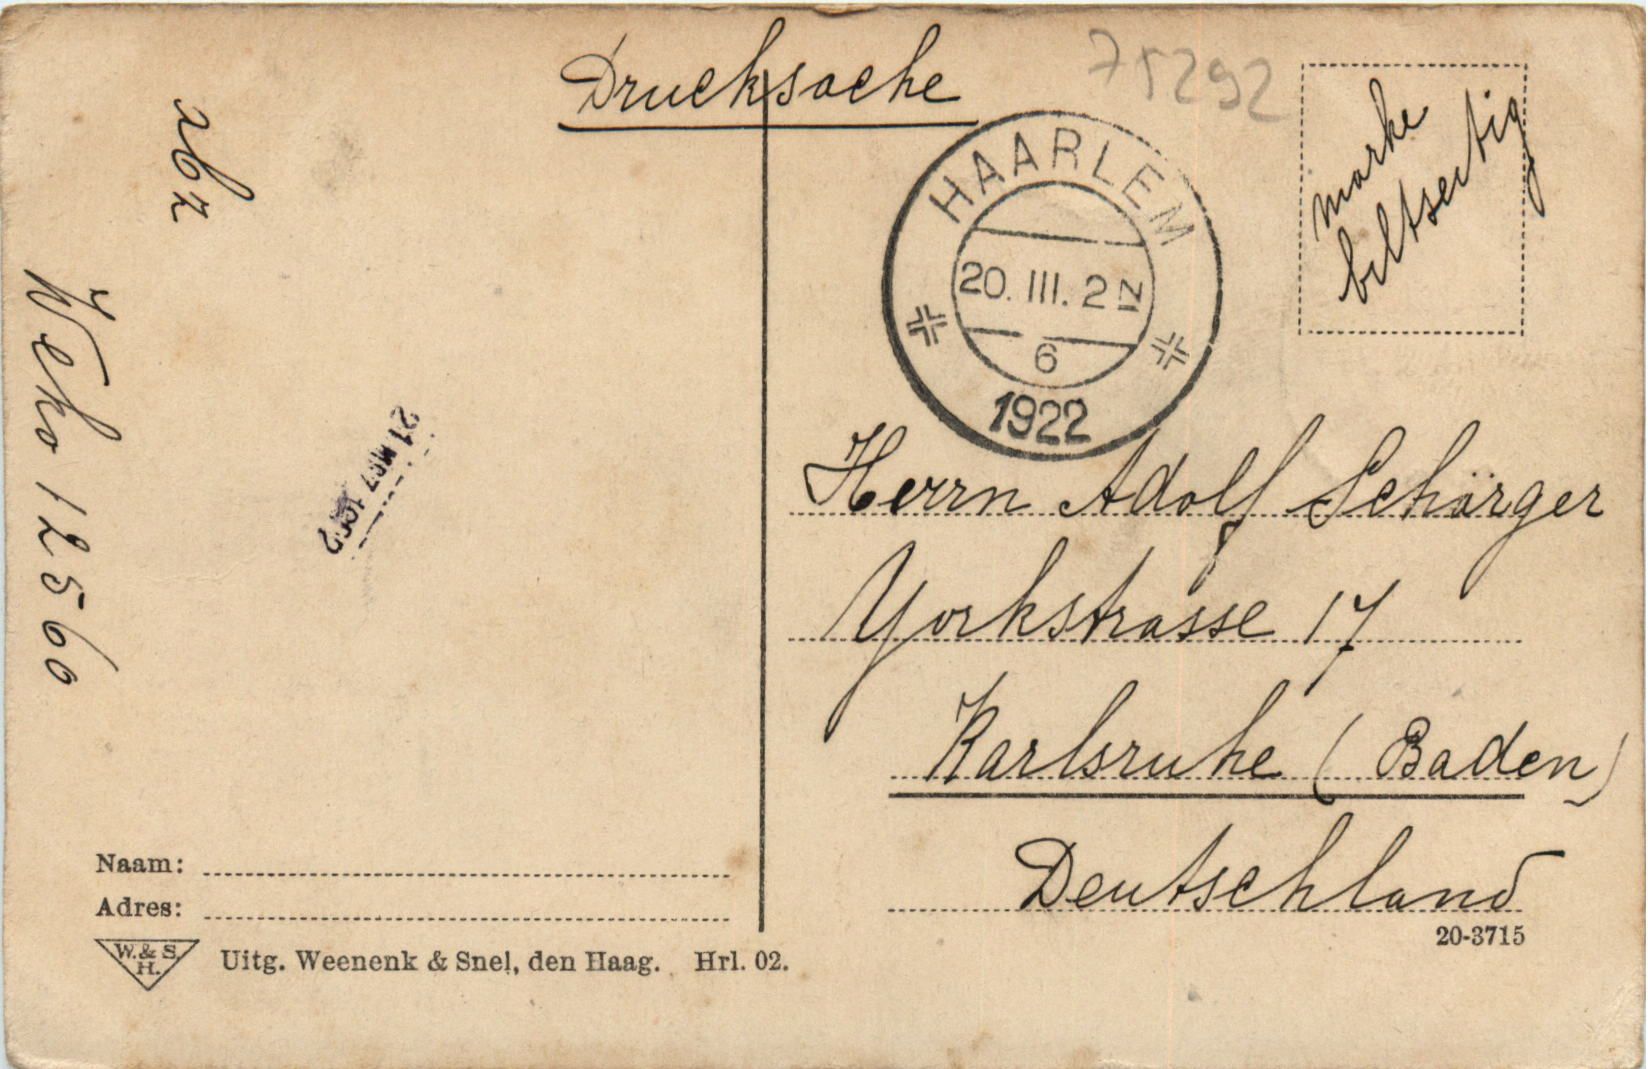 Drucksache
75292
marke
bildseitig
HAARLEM
20. III. 2 N
6
1922
Weko 12560
Herrn Adolf Schörger
Yorkstrasse 17
Karlsruhe (Baden)
Deutschland
20-3715
Naam:
Adres:
W. & S.
H.
Uitg. Weenenk & Snel, den Haag. Hrl. 02.